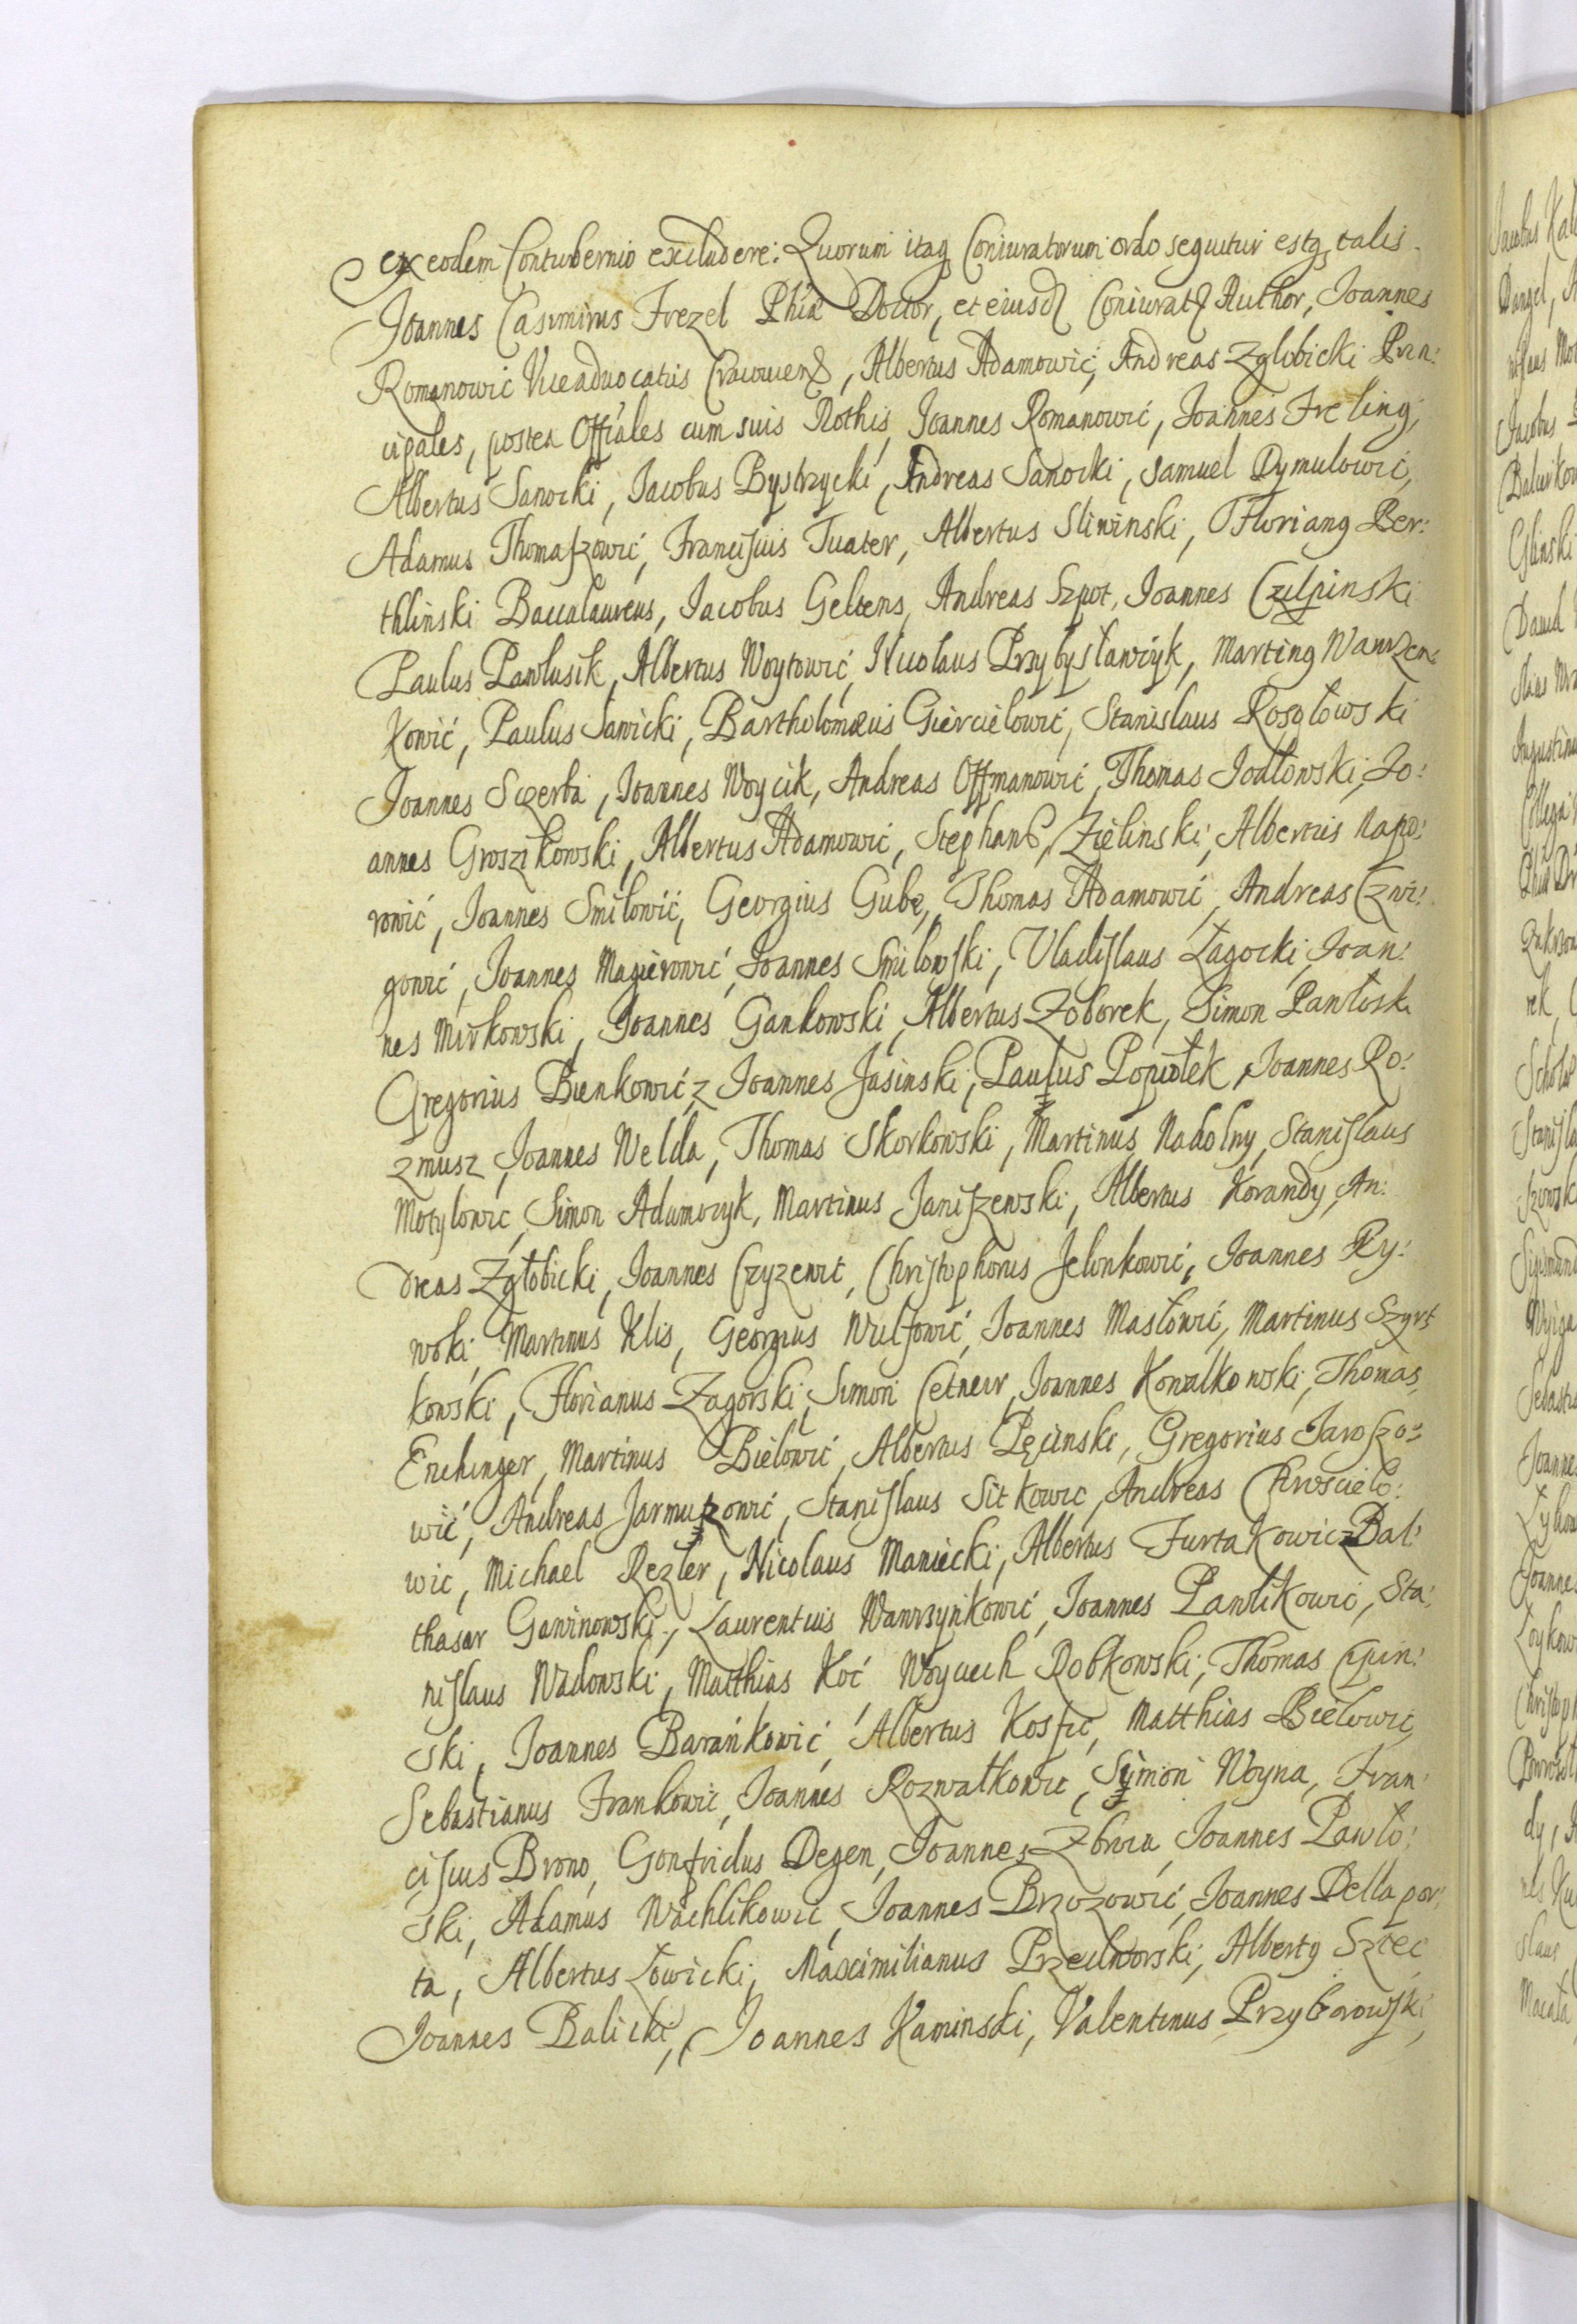 ex eodem Contubernio excludere: Quorum itaq Coniuratorum ordo sequitur estq talis.
Joannes Casimirus Frezel Phiæ Doctor, et eiusd Coniurat Author, Joannes
Romanowić Viceadvocatus Cracovien, Albertus Adamowić, Andreas Zglobicki Prin:
cipales, postea Offiales cum suis Rothis, Joannes Romanowić, Joannes Freling,
Albertus Sanocki, Jacobus Bystrzycki, Andreas Sanocki, Samuel Dymulowić,
Adamus Thomaszowić, Franciscus Tuater, Albertus Sliwinski, Floriang Ber:
thlinski Baccalaureus, Jacobus Geltens, Andreas Szpot, Joannes Czulpinski
Paulus Pawlusik, Albertus Woytowić, Nicolaus Przybysławczyk, Marting Wawrzen:
kowić, Paulus Sawicki, Bartholomæus Giercielowić, Stanislaus Rosołowski
Joannes Sczerba, Joannes Woycik, Andreas Offmanowić, Thomas Jodłowski, Jo:
annes Groszikowski, Albertus Adamowić, Stephans Zielinski, Albertus Napo:
rowić, Joannes Smiłowić, Georgius Gubę, Thomas Adamowić, Andreas Czwi:
gowić, Joannes Magierowić, Joannes Smilowski, Vladislaus Łagocki, Joan:
nes Mirkowski, Joannes Gankowski, Albertus Zoborek, Simon Pawłosk
Gregorius Bienkowićz Joannes Jasinski, Paulus Popiołek, Joannes Ro:
zmusz, Joannes Welda, Thomas Skorkowski, Martinus Nadolny, Stanislaus
Motylowic, Simon Adamczyk, Martinus Janiszewski, Albertus Korandy, An:
dreas Zgłobicki, Joannes Czyzewic, Christophorus Jelonkowić, Joannes Ry:
wski, Martinus Klis, Georgius Wulfowić, Joannes Masłowić, Martinus Szyrs
kowski, Florianus Zagorski, Simon Cetner, Joannes Kowalkowski, Thomas
Erchinger, Martinus Bielowić, Albertus Pęcinski, Gregorius Jaroszo:
wić, Andreas Jarmuzowić, Stanislaus Sitkowic, Andreas Chroscielo:
wic, Michael Rezler, Nicolaus Maniecki, Albertus Furtakowicz Bal:
thasar Gawinowski, Laurentius Wawrzyńkowić, Joannes Pawlikowic, Sta:
nislaus Wadowski, Matthias Koć Woyciech Robkowski, Thomas Czpin:
ski, Joannes Barańkowić, Albertus Kosfic, Matthias Bielowic,
Sebastianus Frankowic, Joannes Rozwałkowic, Symon Woyna, Fran:
ciscus Brono, Gonfridus Degen, Joannes Zbroia Joannes Pawło:
ski, Adamus Wachlikowic, Joannes Brzozowić, Joannes Della por:
ta, Albertus Łowicki, Maximilianus Przecłworski, Albertg Sztec
Joannes Balicki, Joannes Kaminski, Valentinus Przyborowski,